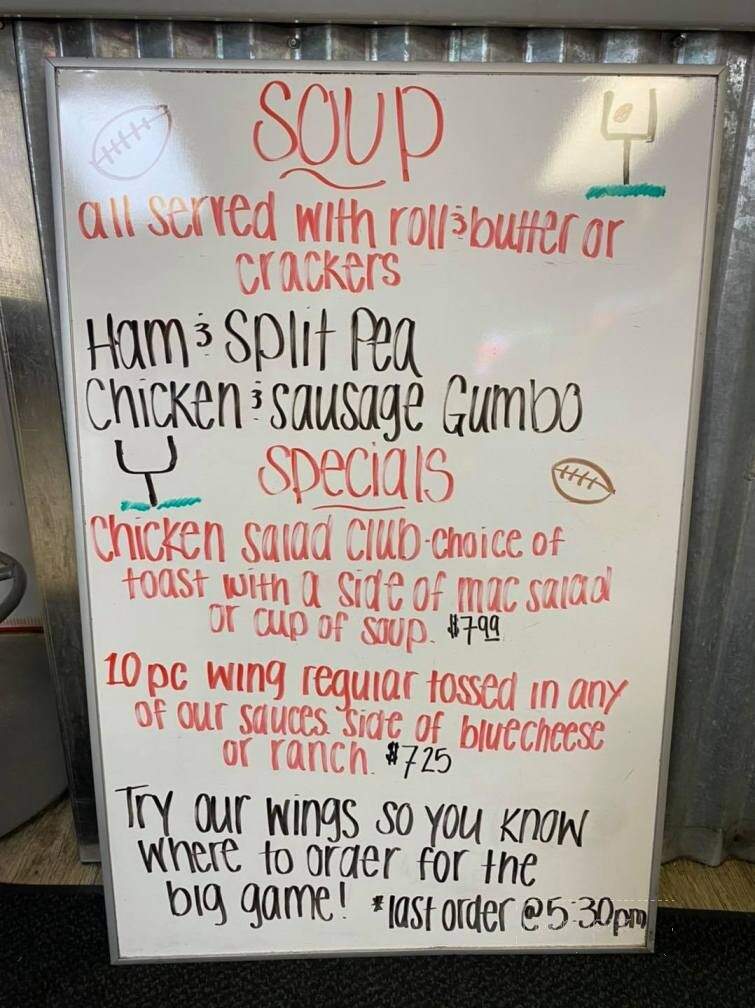 SOUP
all served with roll & butter or
crackers
Ham & Split Pea
Chicken & sausage Gumbo
Specials
Chicken Salad Club - choice of
toast with a side of mac salad
or cup of soup. $7.99
10 pc wing regular tossed in any
of our sauces. Side of bluecheese
or ranch. $7.25
Try our wings so you know
where to order for the
big game! *last order @5:30pm